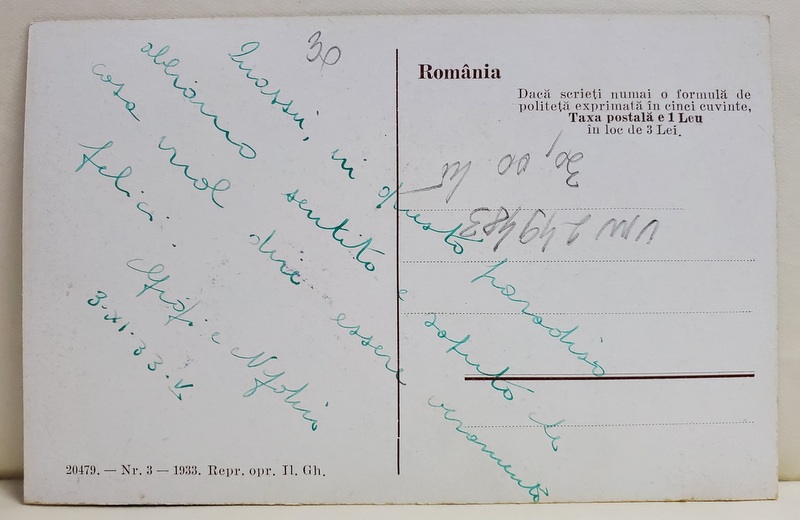 30
România
Dacă scrieți numai o formulă de
politeță exprimată în cinci cuvinte,
Taxa postală e 1 Leu
în loc de 3 Lei.
30,00 lei
VM 249483
in questo paradiso
abbiamo sentito e saputo che
cosa vuol dire essere veramente
felici.
e
3.XI.33.
20479. — Nr. 3 — 1933. Repr. opr. Il. Gh.